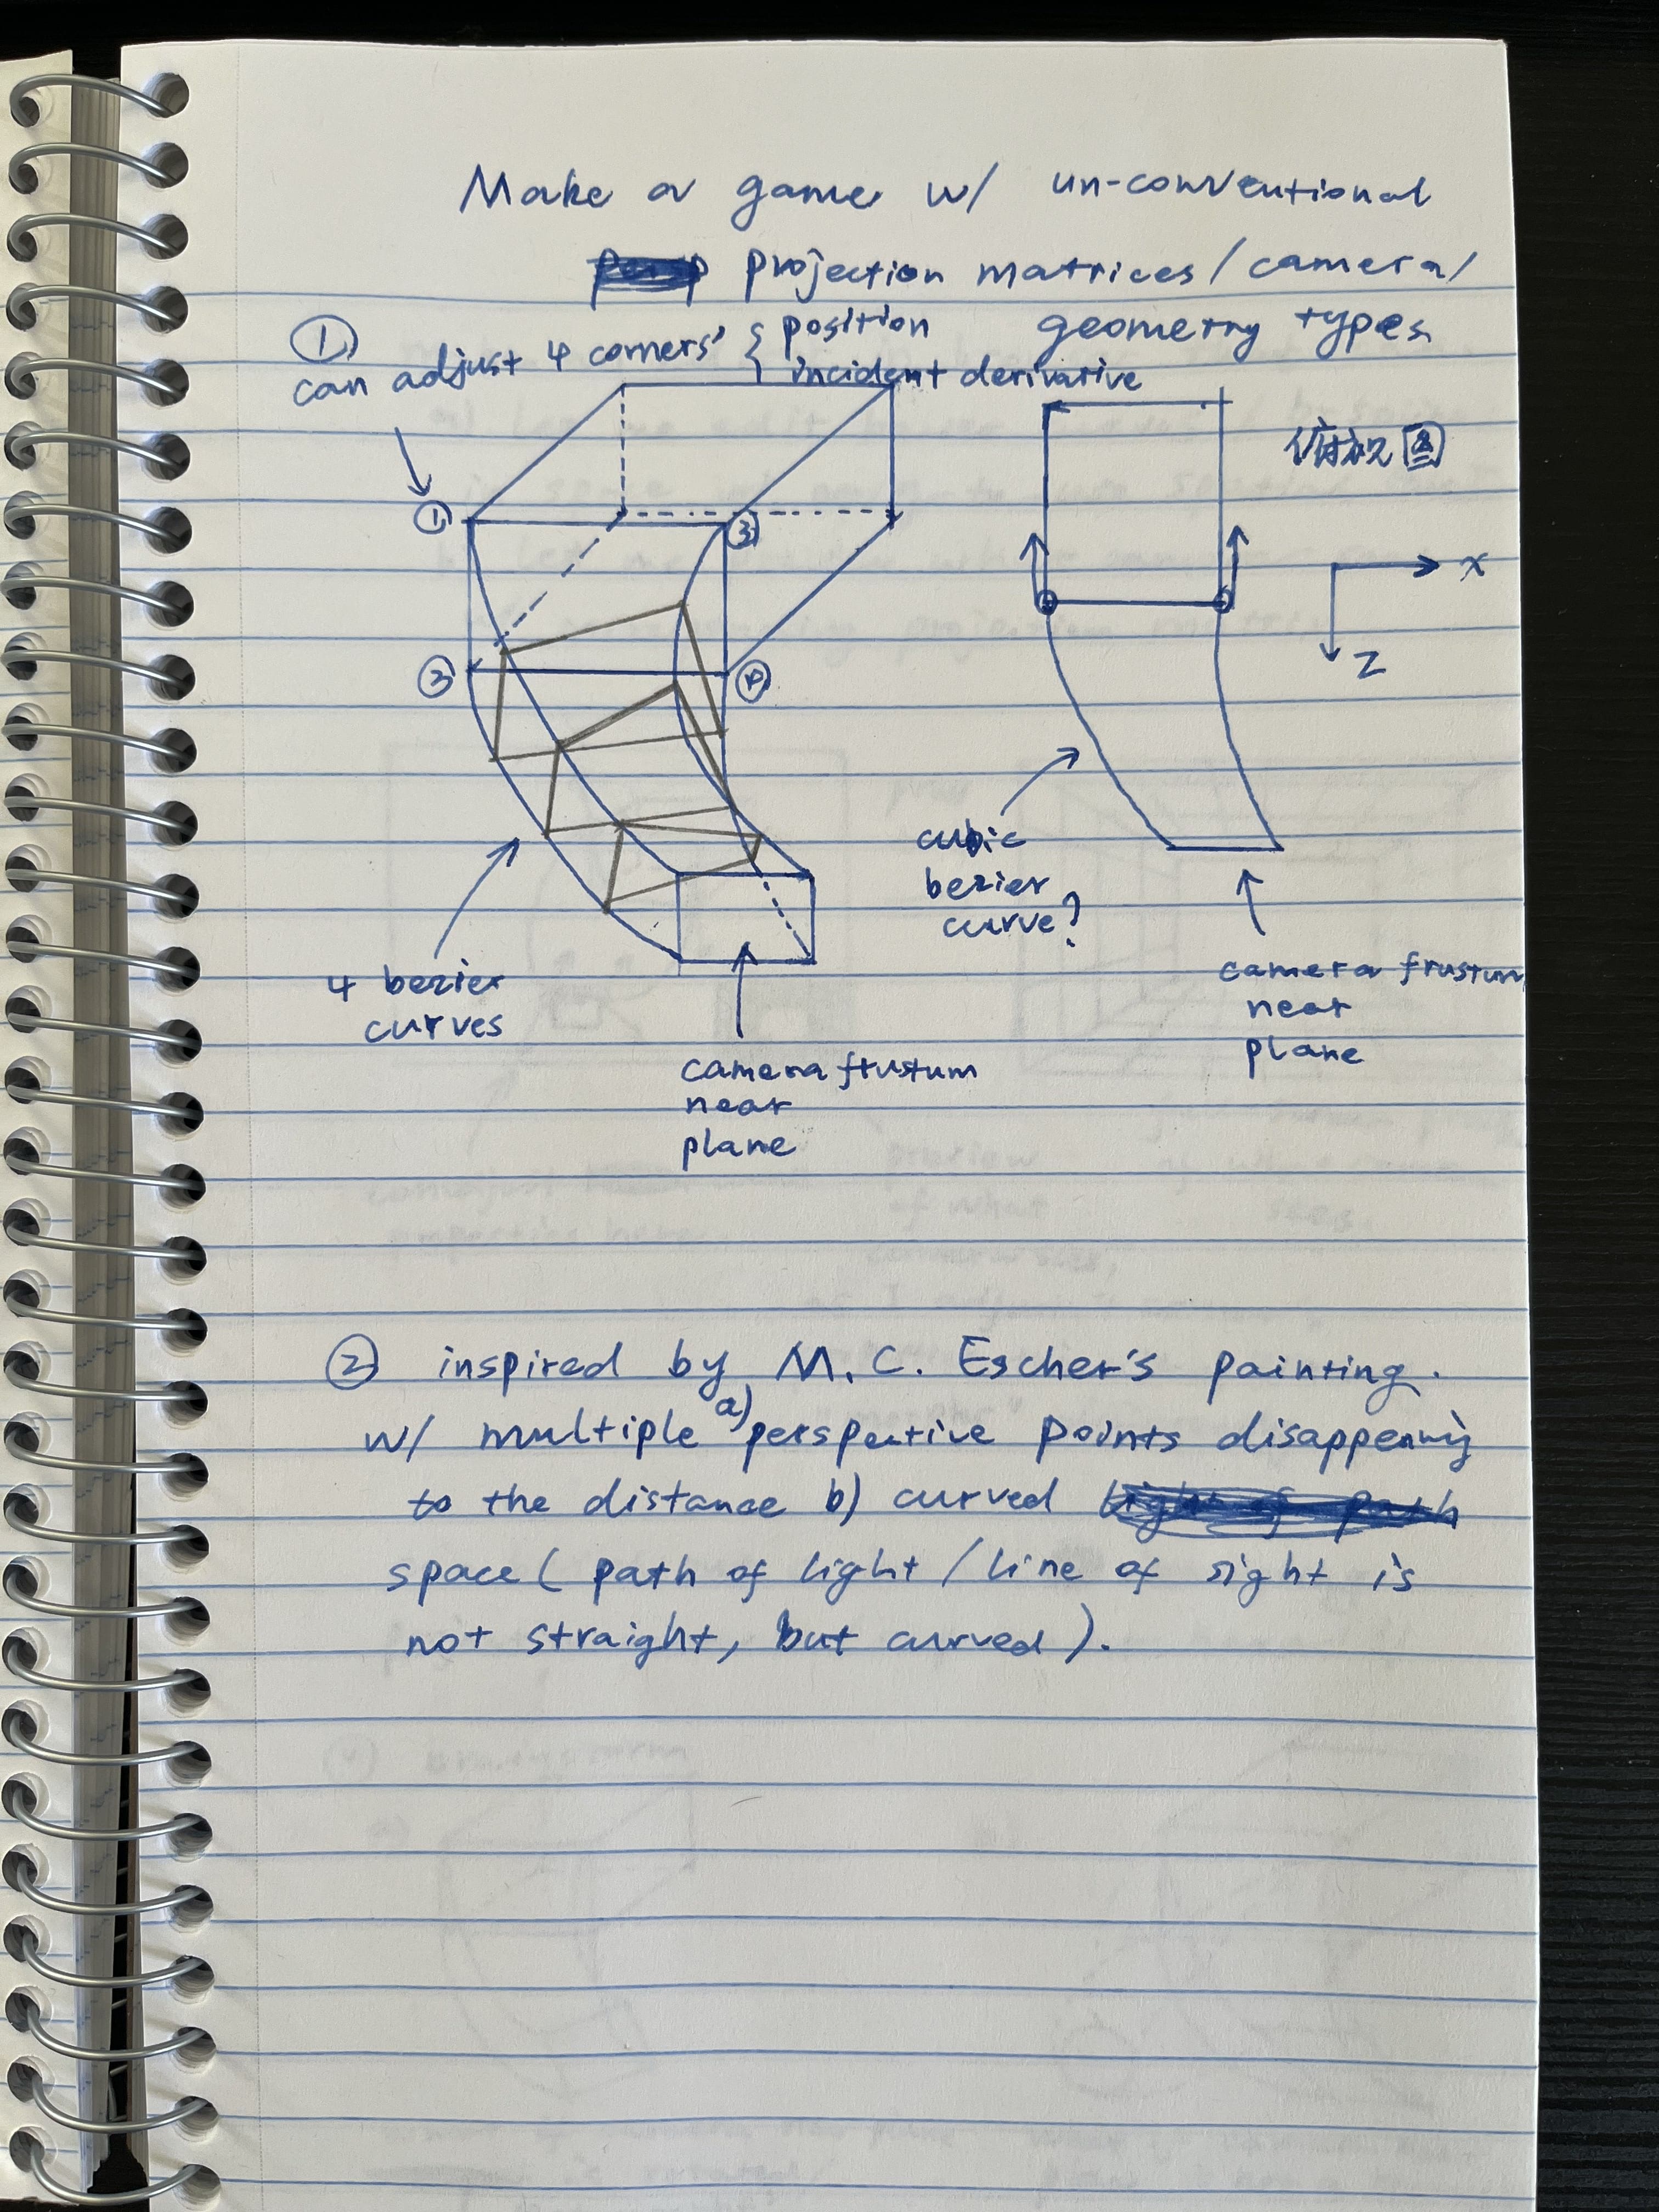 Make a game w/ un-conventional
projection matrices/camera/
geometry types
①
can adjust 4 corners' { position
incident derivative
俯视图
①
③
②
④
x
z
cubic
bezier
curve?
4 bezier
curves
camera frustum
near
plane
camera frustum
near
plane
② inspired by M.C. Escher's painting.
w/ multiple a) perspective points disappearing
to the distance b) curved
space ( path of light / line of sight is
not straight, but curved ).